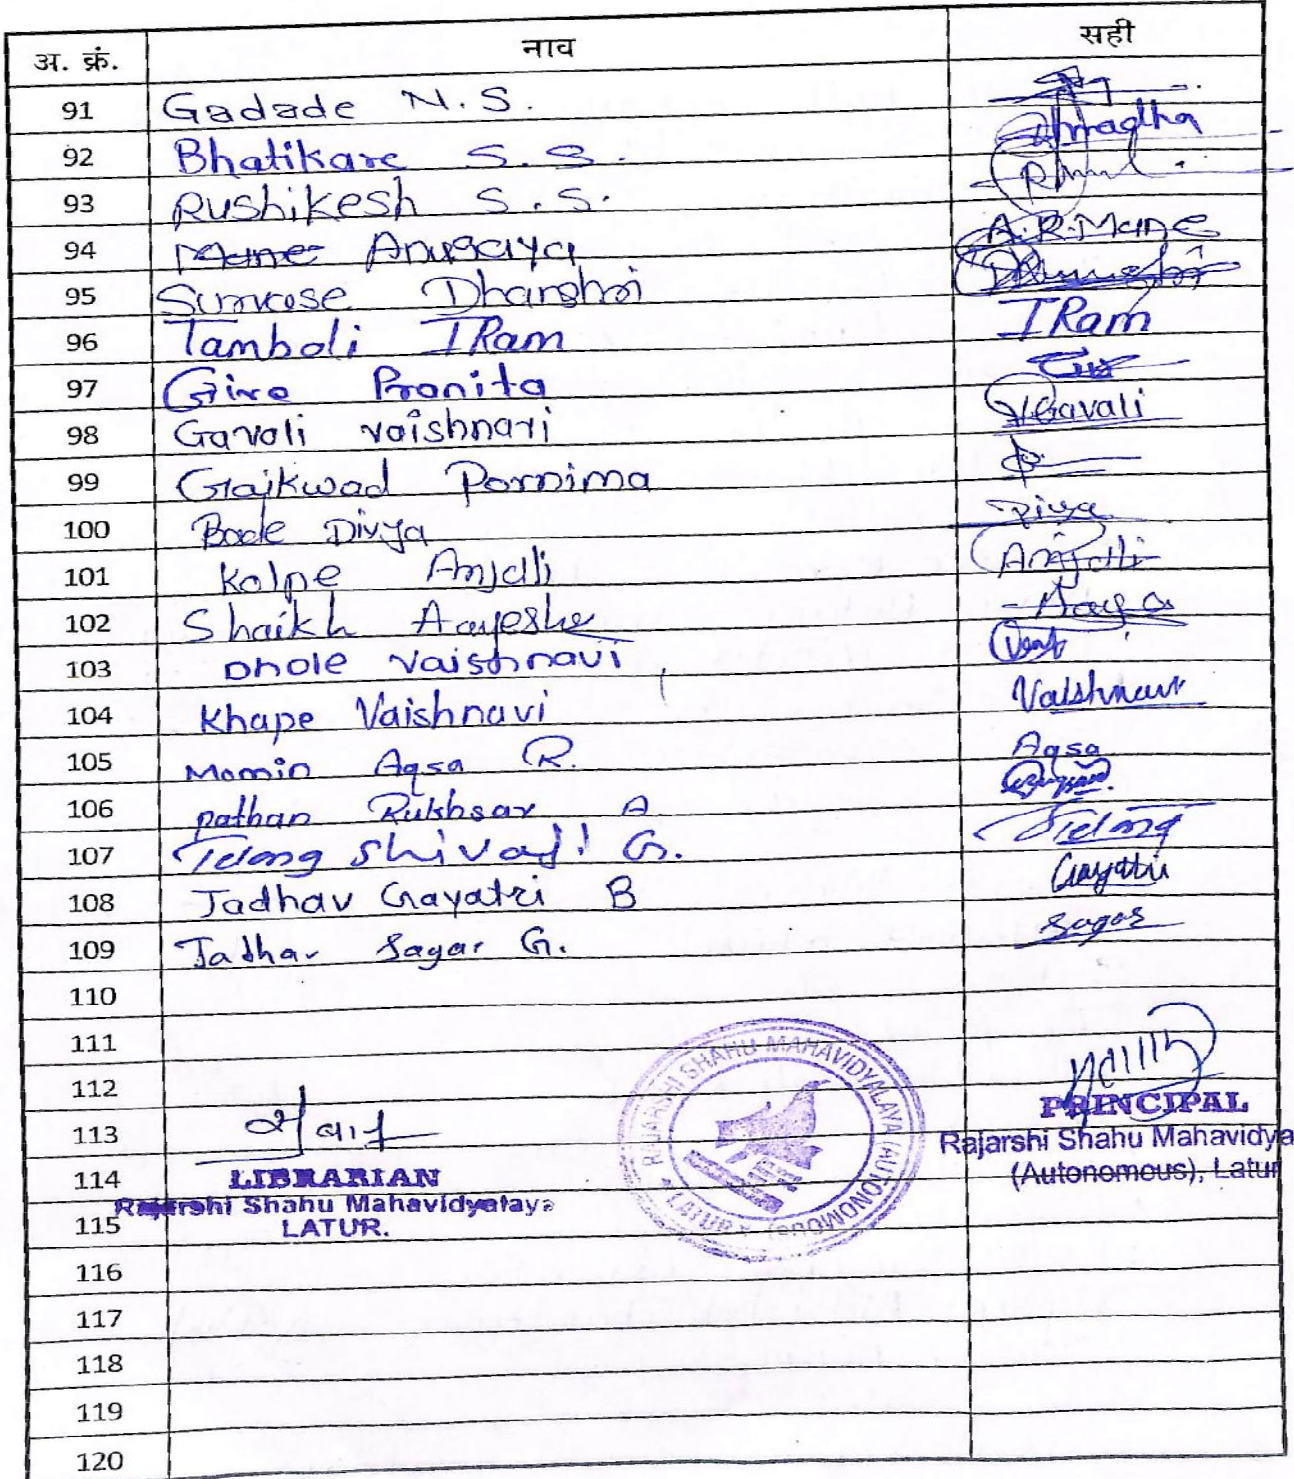 अ. क्रं. नाव सही
91 Gadade N.S.
92 Bhatikare S.S. Anuradha
93 Rushikesh S.S.
94 Mane Anusaya A.R.Mane
95 Survase Dhanshri Dhanashri
96 Tamboli IRam IRam
97 Gire Pranita
98 Gavali vaishnavi VGavali
99 Gaikwad Pornima
100 Bode Divya Divya
101 Kalpe Anjali Anjali
102 Shaikh Aayesha
103 Dhole Vaishnavi
104 Khape Vaishnavi Vaishnavi
105 Momin Aqsa R. Aqsa
106 pathan Rukhsar A.
107 Telang Shivaji G. Telang
108 Jadhav Gayatri B Gayatri
109 Jadhav Sagar G. Sagar
110
111
112
113
114
115
116
117
118
119
120
LIBRARIAN
Rajarshi Shahu Mahavidyalaya
LATUR.
RAJARSHI SHAHU MAHAVIDYALAYA (AUTONOMOUS)
LATUR
PRINCIPAL
Rajarshi Shahu Mahavidya
(Autonomous), Latur